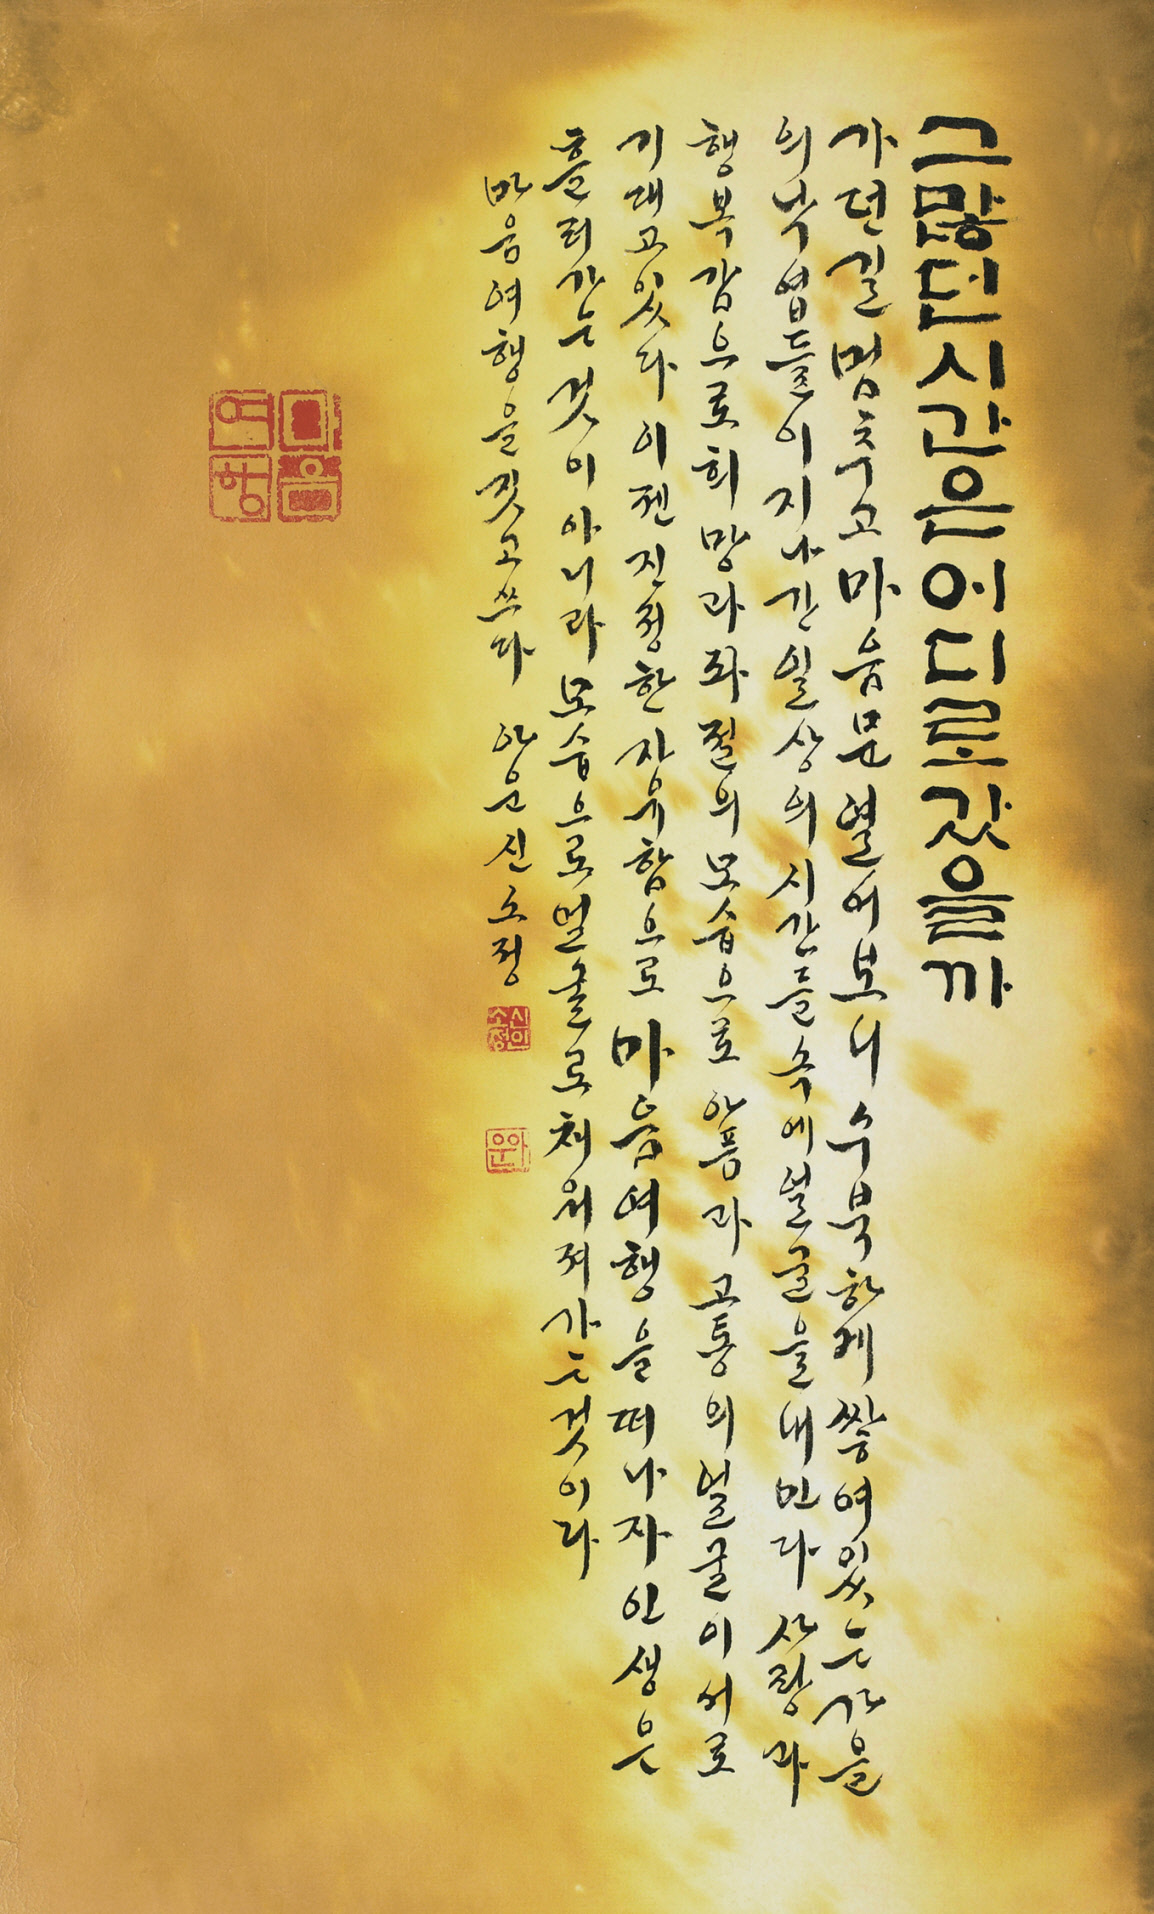 그많던시간은어디로갔을까
가던길 멈추고 마음문 열어보니 수북하게 쌓여있는 가을
의 낙엽들이 지나간 일상의 시간들 속에 얼굴을 내민다 사랑과
행복감으로 희망과 좌절의 모습으로 아픔과 고통의 얼굴이 서로
기대고 있다 이젠 진정한 자유함으로 마음여행을 떠나자 인생은
흘러가는 것이 아니라 모습으로 얼굴로 채워져 가는 것이다
마음여행을 짓고 쓰다 아운 신소정
신의소정
아운
마음여행